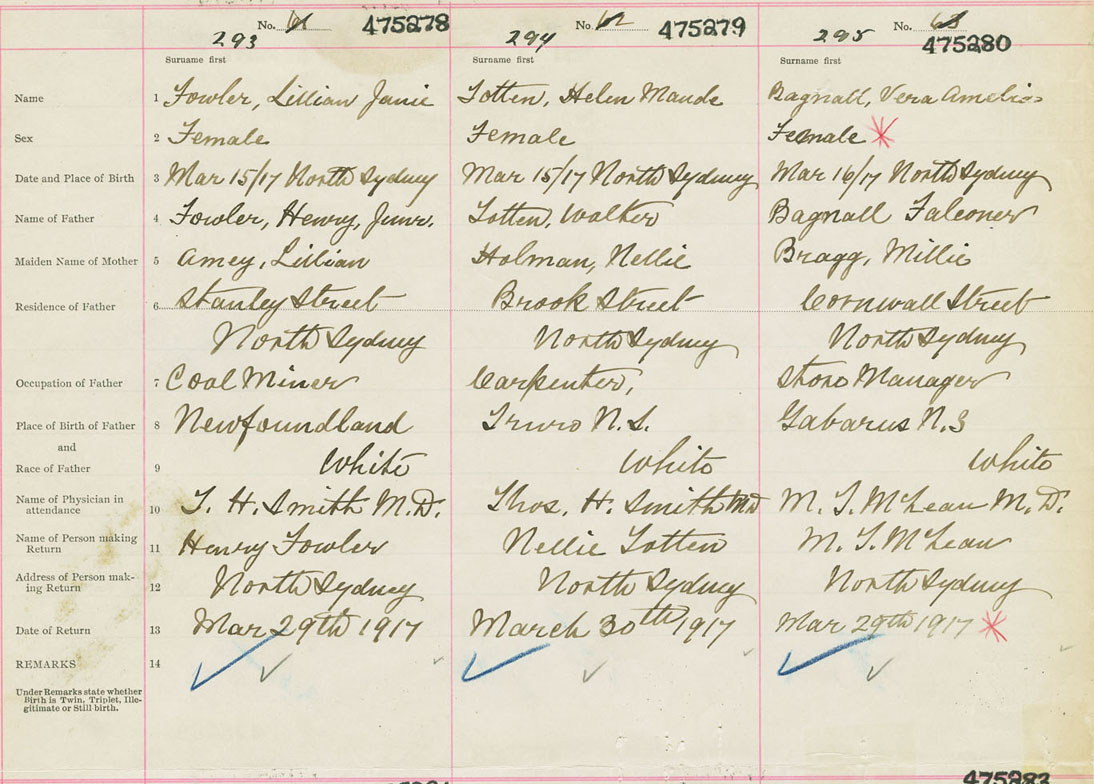 No. 61 475278 No. 62 475279 No. 63 475280
293 294 295
Surname first Surname first Surname first
Name 1 Fowler, Lillian Janie Totten, Helen Maude Bagnall, Vera Amelia
Sex 2 Female Female Female
Date and Place of Birth 3 Mar 15/17 North Sydney Mar 15/17 North Sydney Mar 16/17 North Sydney
Name of Father 4 Fowler, Henry, Junr. Totten, Walter Bagnall Falconer
Maiden Name of Mother 5 Amey, Lillian Holman, Nellie Bragg, Millie
Residence of Father 6 Stanley Street Brook Street Cornwall Street
North Sydney North Sydney North Sydney
Occupation of Father 7 Coal Miner Carpenter, Store Manager
Place of Birth of Father 8 Newfoundland Truro N.S. Gabarus N.S
and
Race of Father 9 White White White
Name of Physician in
attendance 10 T. H. Smith M.D. Thos. H. Smith M.D M. T. McLean M.D.
Name of Person making
Return 11 Henry Fowler Nellie Totten M. T. McLean
Address of Person mak-
ing Return 12 North Sydney North Sydney North Sydney
Date of Return 13 Mar 29th 1917 March 30th 1917 Mar 29th 1917
REMARKS 14
Under Remarks state whether
Birth is Twin, Triplet, Ille-
gitimate or Still birth.
475283